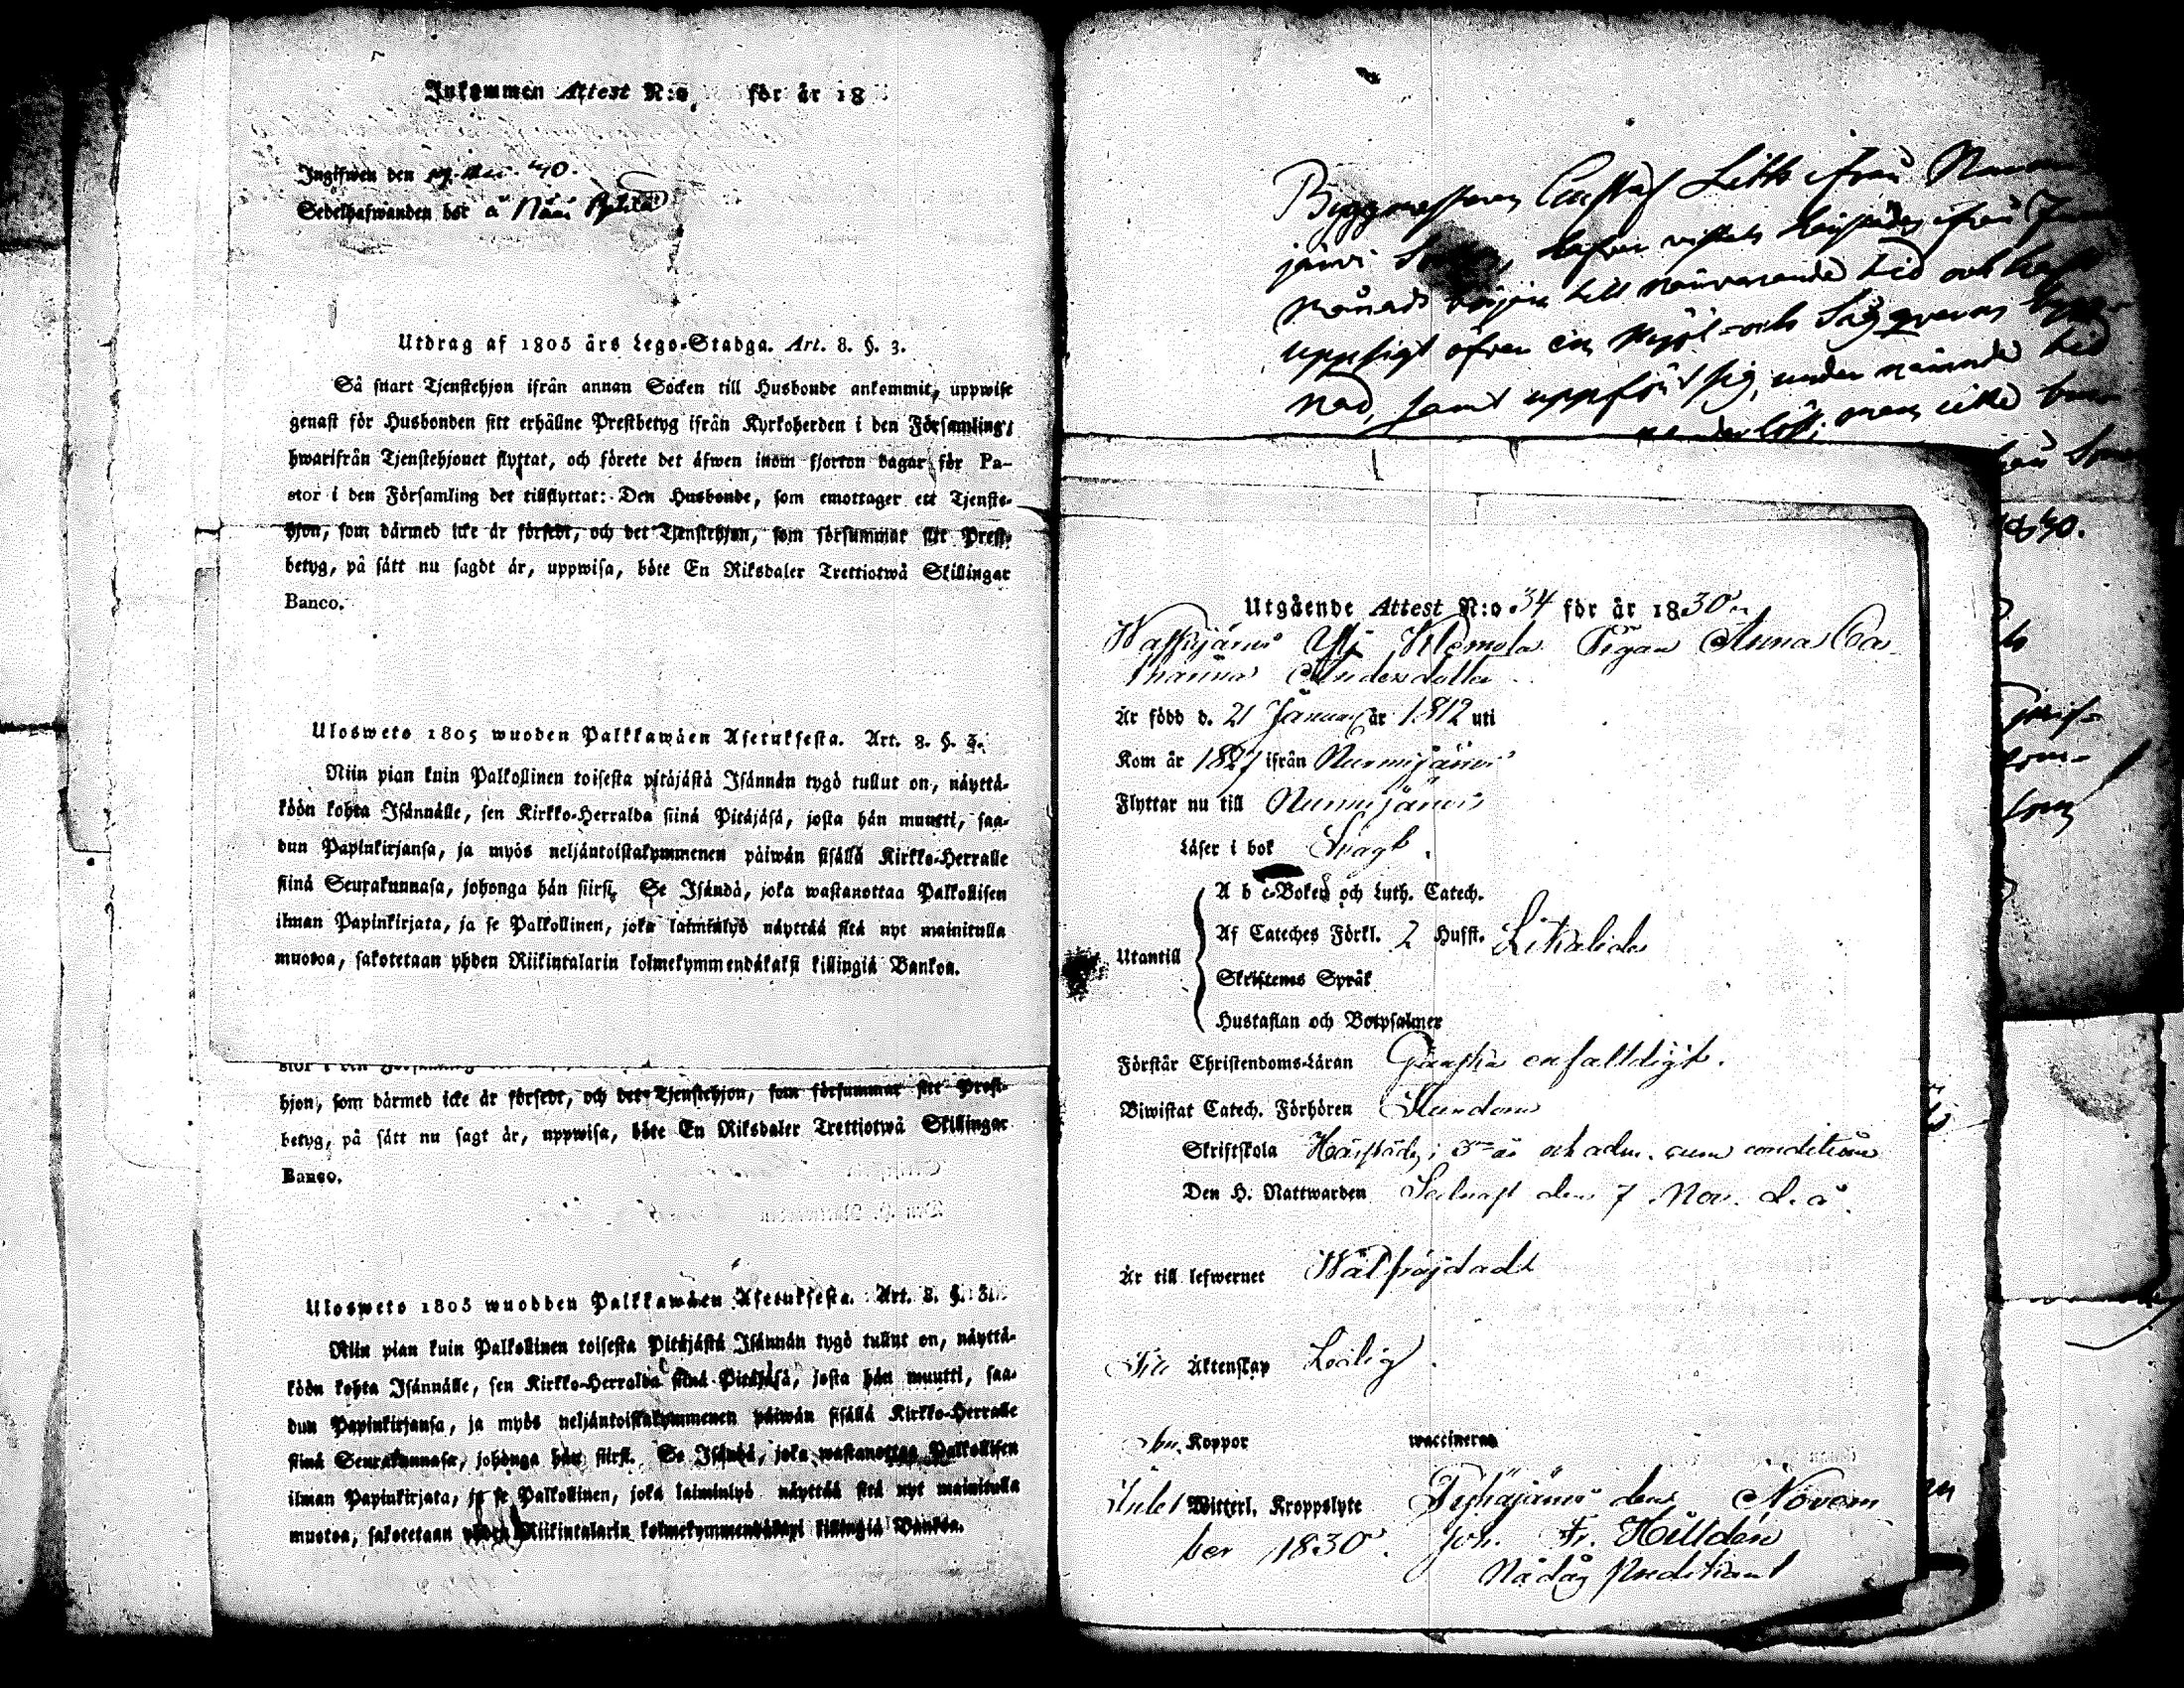 Inkommen Attest N:o för år 18
Ingifwen den 40.
Sedelhafwanden bor å Näs
Utdrag af 1805 års Lego-Stadga. Art. 8. §. 3.
Så snart Tjenstehjon ifrån annan Socken till Husbonde ankommit, uppwise
genast för Husbonden sitt erhållne Prestbetyg ifrån Kyrkoherden i den Församling,
hwarifrån Tjenstehjonet flyttat, och förete det äfwen inom fjorton dagar för Pa-
stor i den Församling det tillflyttat: Den Husbonde, som emottager ett Tjenste-
hjon, som därmed icke är försedt, och det Tjenstehjon, som försummar sitt Prest-
betyg, på sätt nu sagdt är, uppwisa, böte En Riksdaler Trettiotwå Skillingar
Banco.
Ulosweto 1805 wuoden Palkkawäen Asetuksesta. Art. 8. §. 3.
Niin pian kuin Palkollinen toisesta pitäjästä Isännän tygö tullut on, näyttä-
köön kohta Isännälle, sen Kirkko-Herralda siinä Pitäjäsä, josta hän muutti, saa-
dun Papinkirjansa, ja myös neljäntoistakymmenen päiwän sisällä Kirkko-Herralle
siinä Seurakunnasa, johonga hän siirsi. Se Isändä, joka wastanottaa Palkollisen
ilman Papinkirjata, ja se Palkollinen, joka laiminlyö näyttää sitä nyt mainitulla
muotoa, sakotetaan yhden Riikintalarin kolmekymmendäkaksi killingiä Bankoa.
hjon, som därmed icke är försedt, och det Tjenstehjon, som försummar sitt Prest-
betyg, på sätt nu sagt är, uppwisa, böte En Riksdaler Trettiotwå Skillingar
Banco.
Ulosweto 1805 wuodden Palkkawäen Asetuksesta. Art. 8. §. 3.
Niin pian kuin Palkollinen toisesta Pitäjästä Isännän tygö tullut on, näyttä-
köön kohta Isännälle, sen Kirkko-Herralda siinä Pitäjäsä, josta hän muutti, saa-
dun Papinkirjansa, ja myös neljäntoistakymmenen päiwän sisällä Kirkko-Herralle
siinä Seurakunnasa, johonga hän siirsi. Se Isändä, joka wastanottaa Palkollisen
ilman Papinkirjata, ja se Palkollinen, joka laiminlyö näyttää sitä nyt mainitulla
muotoa, sakotetaan yhden Riikintalarin kolmekymmendäkaxi killingiä Bankoa.
Byggmestaren Gustaf ifrån
järvi hafver vistats härstädes ifrån
månads början till närvarande tid och
uppsigt öfver en Mjöl- och Sågqvarns
nad, samt uppfört sig, under nämnde tid
men icke
1840.
Utgående Attest N:o 34 för år 1830
Waskijärvi By Klemola Pigan Anna Ca
tharina Andersdotter
Är född d. 21 Januari år 1812 uti
Kom år 1827 ifrån Nurmijärvi
Flyttar nu till Nurmijärvi
Läser i bok Svagt.
Utantill
A b c-Boken och Luth. Catech.
Af Cateches Förkl. 2 Hufst. Likaledes
Skriftenes Språk
Hustaflan och Botpsalmer
Förstår Christendoms-Läran Ganska enfaldigt.
Biwistat Catech. Förhören Stundom
Skriftskola Härstädes i 3 år och adm. cum conditione
Den H. Nattwarden Sednast den 7 Nov. d. å.
Är till lefwernet Wälfrejdadt
Till Äktenskap Ledig.
Koppor waccinerad
Intet Witterl. Kroppslyte Pyhäjärvi den Novem
ber 1830. Joh. Fr. Hilldén
Nådåg Predikant